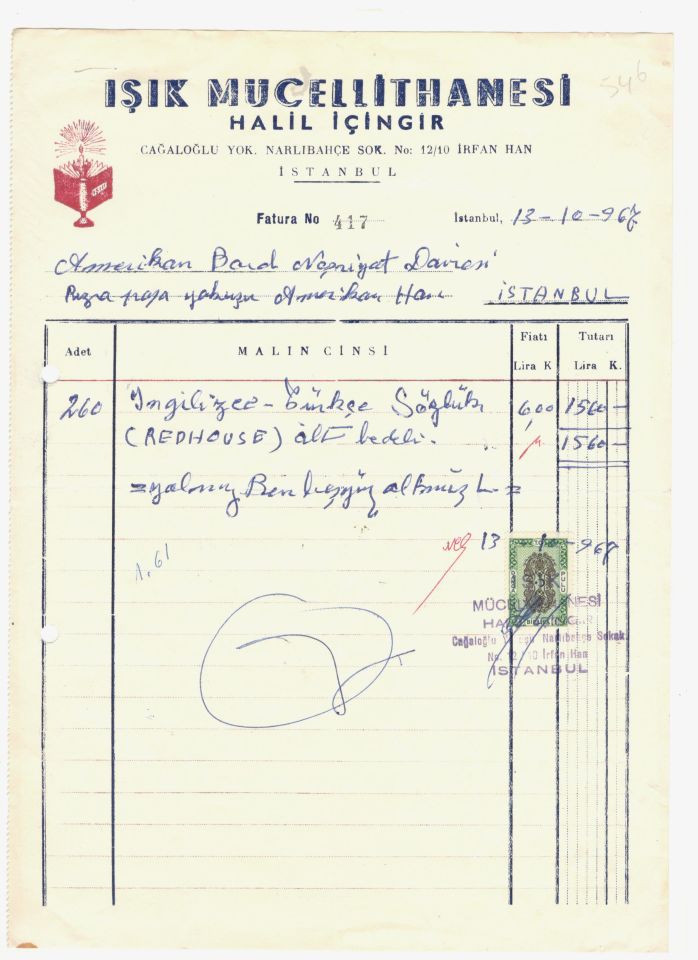 546
IŞIK MÜCELLİTHANESİ
HALİL İÇİNGİR
CAĞALOĞLU YOK. NARLIBAHÇE SOK. No: 12/10 İRFAN HAN
İSTANBUL
IŞIK
Fatura No 417 İstanbul, 13-10-967
Amerikan Bord Neşriyat Dairesi
Rıza paşa yokuşu Amerikan Han İSTANBUL
Adet MALIN CİNSİ Fiatı Tutarı
Lira K Lira K.
260 İngilizce-Türkçe Sözlük 6,00 1560-
(REDHOUSE) cilt bedeli. 1560-
=yalnız Binbeşyüz altmış L=
13 10-967
1.61
MÜCELLİTHANESİ
HALİL İÇİNGİR
Cağaloğlu Narlıbahçe Sokak.
No. 12/10 İrfan Han
İSTANBUL